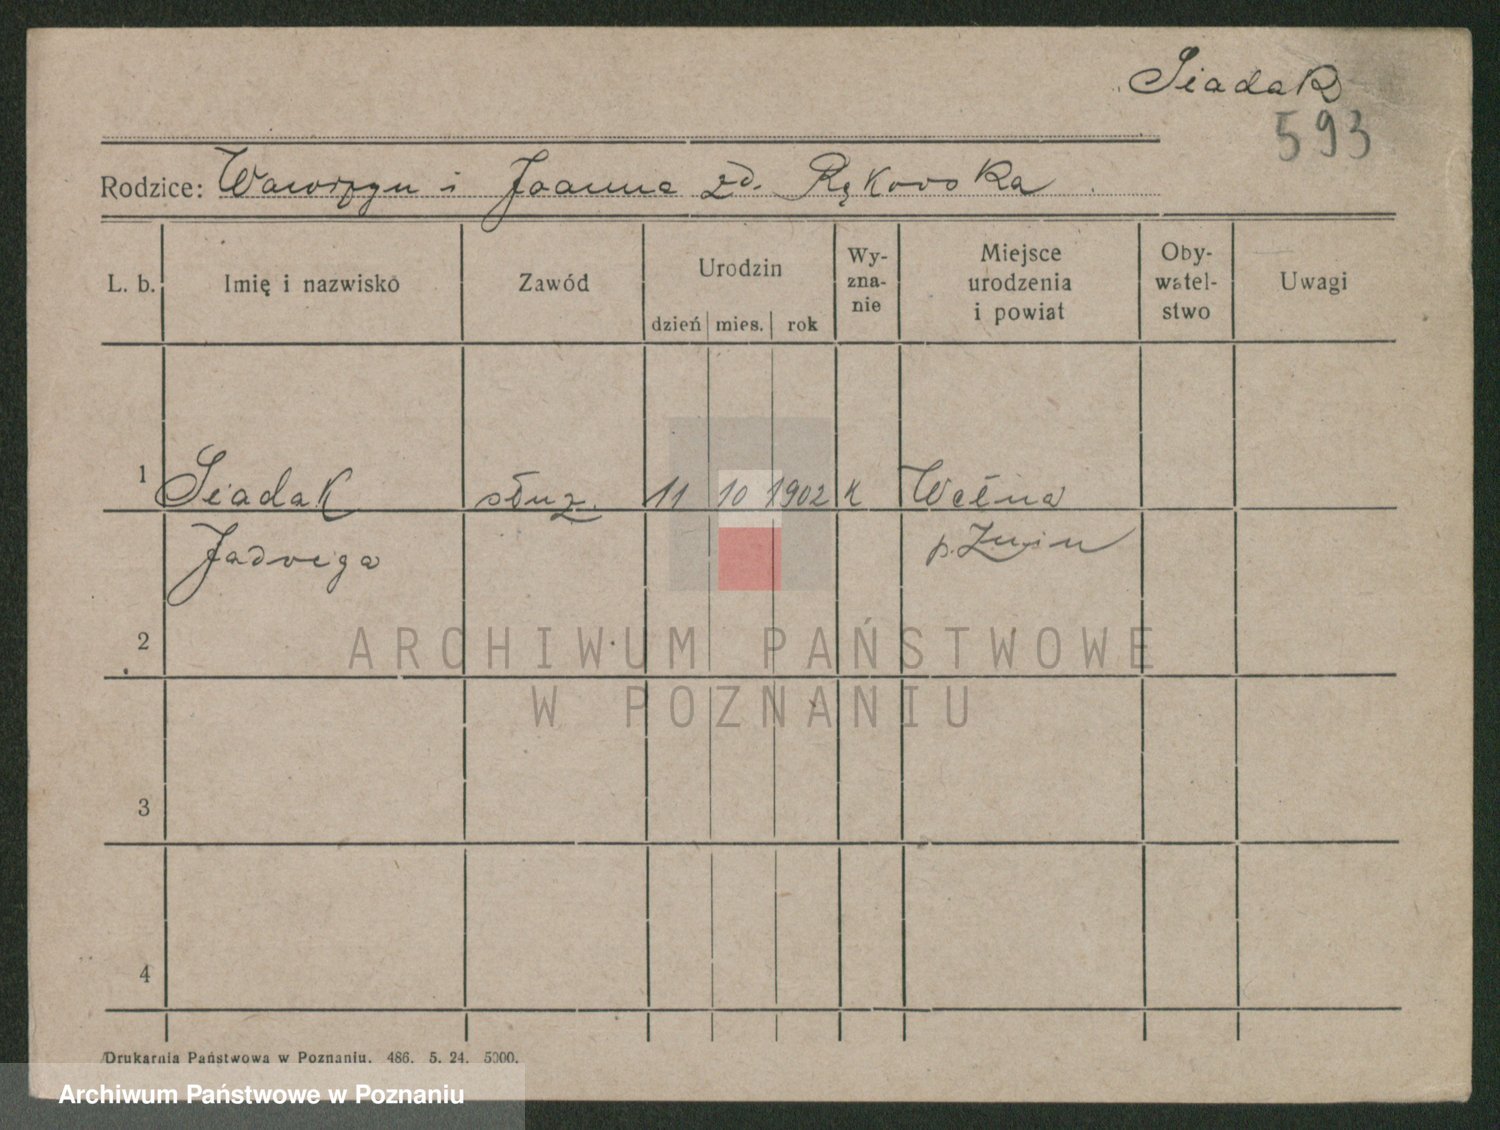 Siadak
593
Rodzice: Wawrzyn i Joanna zd. Rękowska
L. b. Imię i nazwisko Zawód Urodzin dzień mies. rok Wy-zna-nie Miejsce urodzenia i powiat Oby-watel-stwo Uwagi
1 Siadak służ. 11 10 1902 k Wełna
Jadwiga p. Żnin
2
ARCHIWUM PAŃSTWOWE
W POZNANIU
3
4
Drukarnia Państwowa w Poznaniu. 486. 5. 24. 5000.
Archiwum Państwowe w Poznaniu